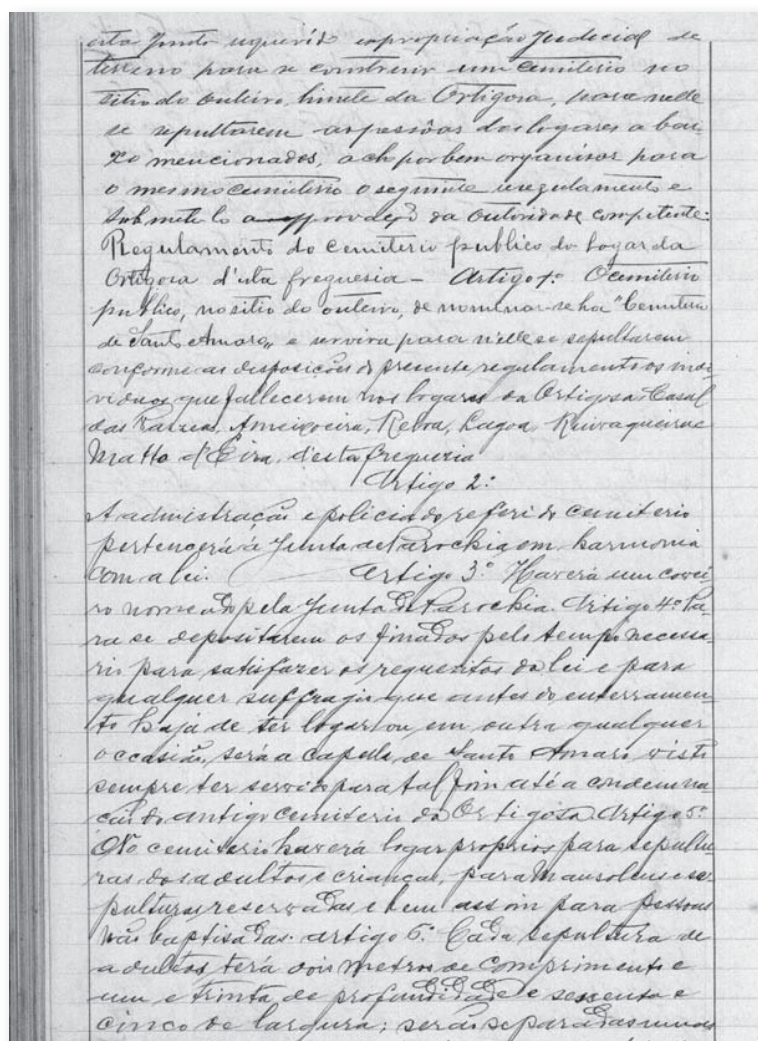 esta Junta requerido expropriação Judicial de
terreno para se construir um cemiterio no
sitio do outeiro, limite da Ortigosa, para nelle
se sepultarem as pessôas dos logares a bai-
xo mencionados, achp por bem organisar para
o mesmo cemiterio o seguinte regulamento e
submetelo a approvação da autoridade competente:
Regulamento do cemiterio publico do logar da
Ortigosa d'esta freguesia — Artigo 1º O cemiterio
publico, no sitio do outeiro, denominar-se ha "Cemiterio
de Santo Amaro" e servira para n'elle se sepultarem
conforme as disposições do presente regulamento os indi-
viduos que fallecerem nos logares da Ortigosa, Casal
das Varzeas, Ameixoeira, Relva, Lagoa, Ruivaqueira e
Matto d'Eira, d'esta freguezia
Artigo 2º
A administração e policia do referido cemiterio
pertencerá á Junta de Parochia em harmonia
com a lei. Artigo 3º Haverá um covei-
ro nomeado pela Junta de Parochia. Artigo 4º Pa-
ra se depositarem os finados pelo tempo necessa-
rio para satisfazer os requesitos da lei e para
qualquer suffragio que antes do enterramen-
to haja de ter logar ou em outra qualquer
occasião, será a capella de Santo Amaro visto
sempre ter servido para tal fim até a condemna-
ção do antigo cemiterio da Ortigosa Artigo 5º
No cemiterio haverá logar proprios para sepultu-
ras dos adultos e crianças, para Mausoleus e se-
pulturas reservadas e bem assim para pessoas
não baptisadas. artigo 6º Cada sepultura de
adultos terá dois metros de comprimento e
um e trinta de profundidade e sessenta e
cinco de largura; serão separadas umas